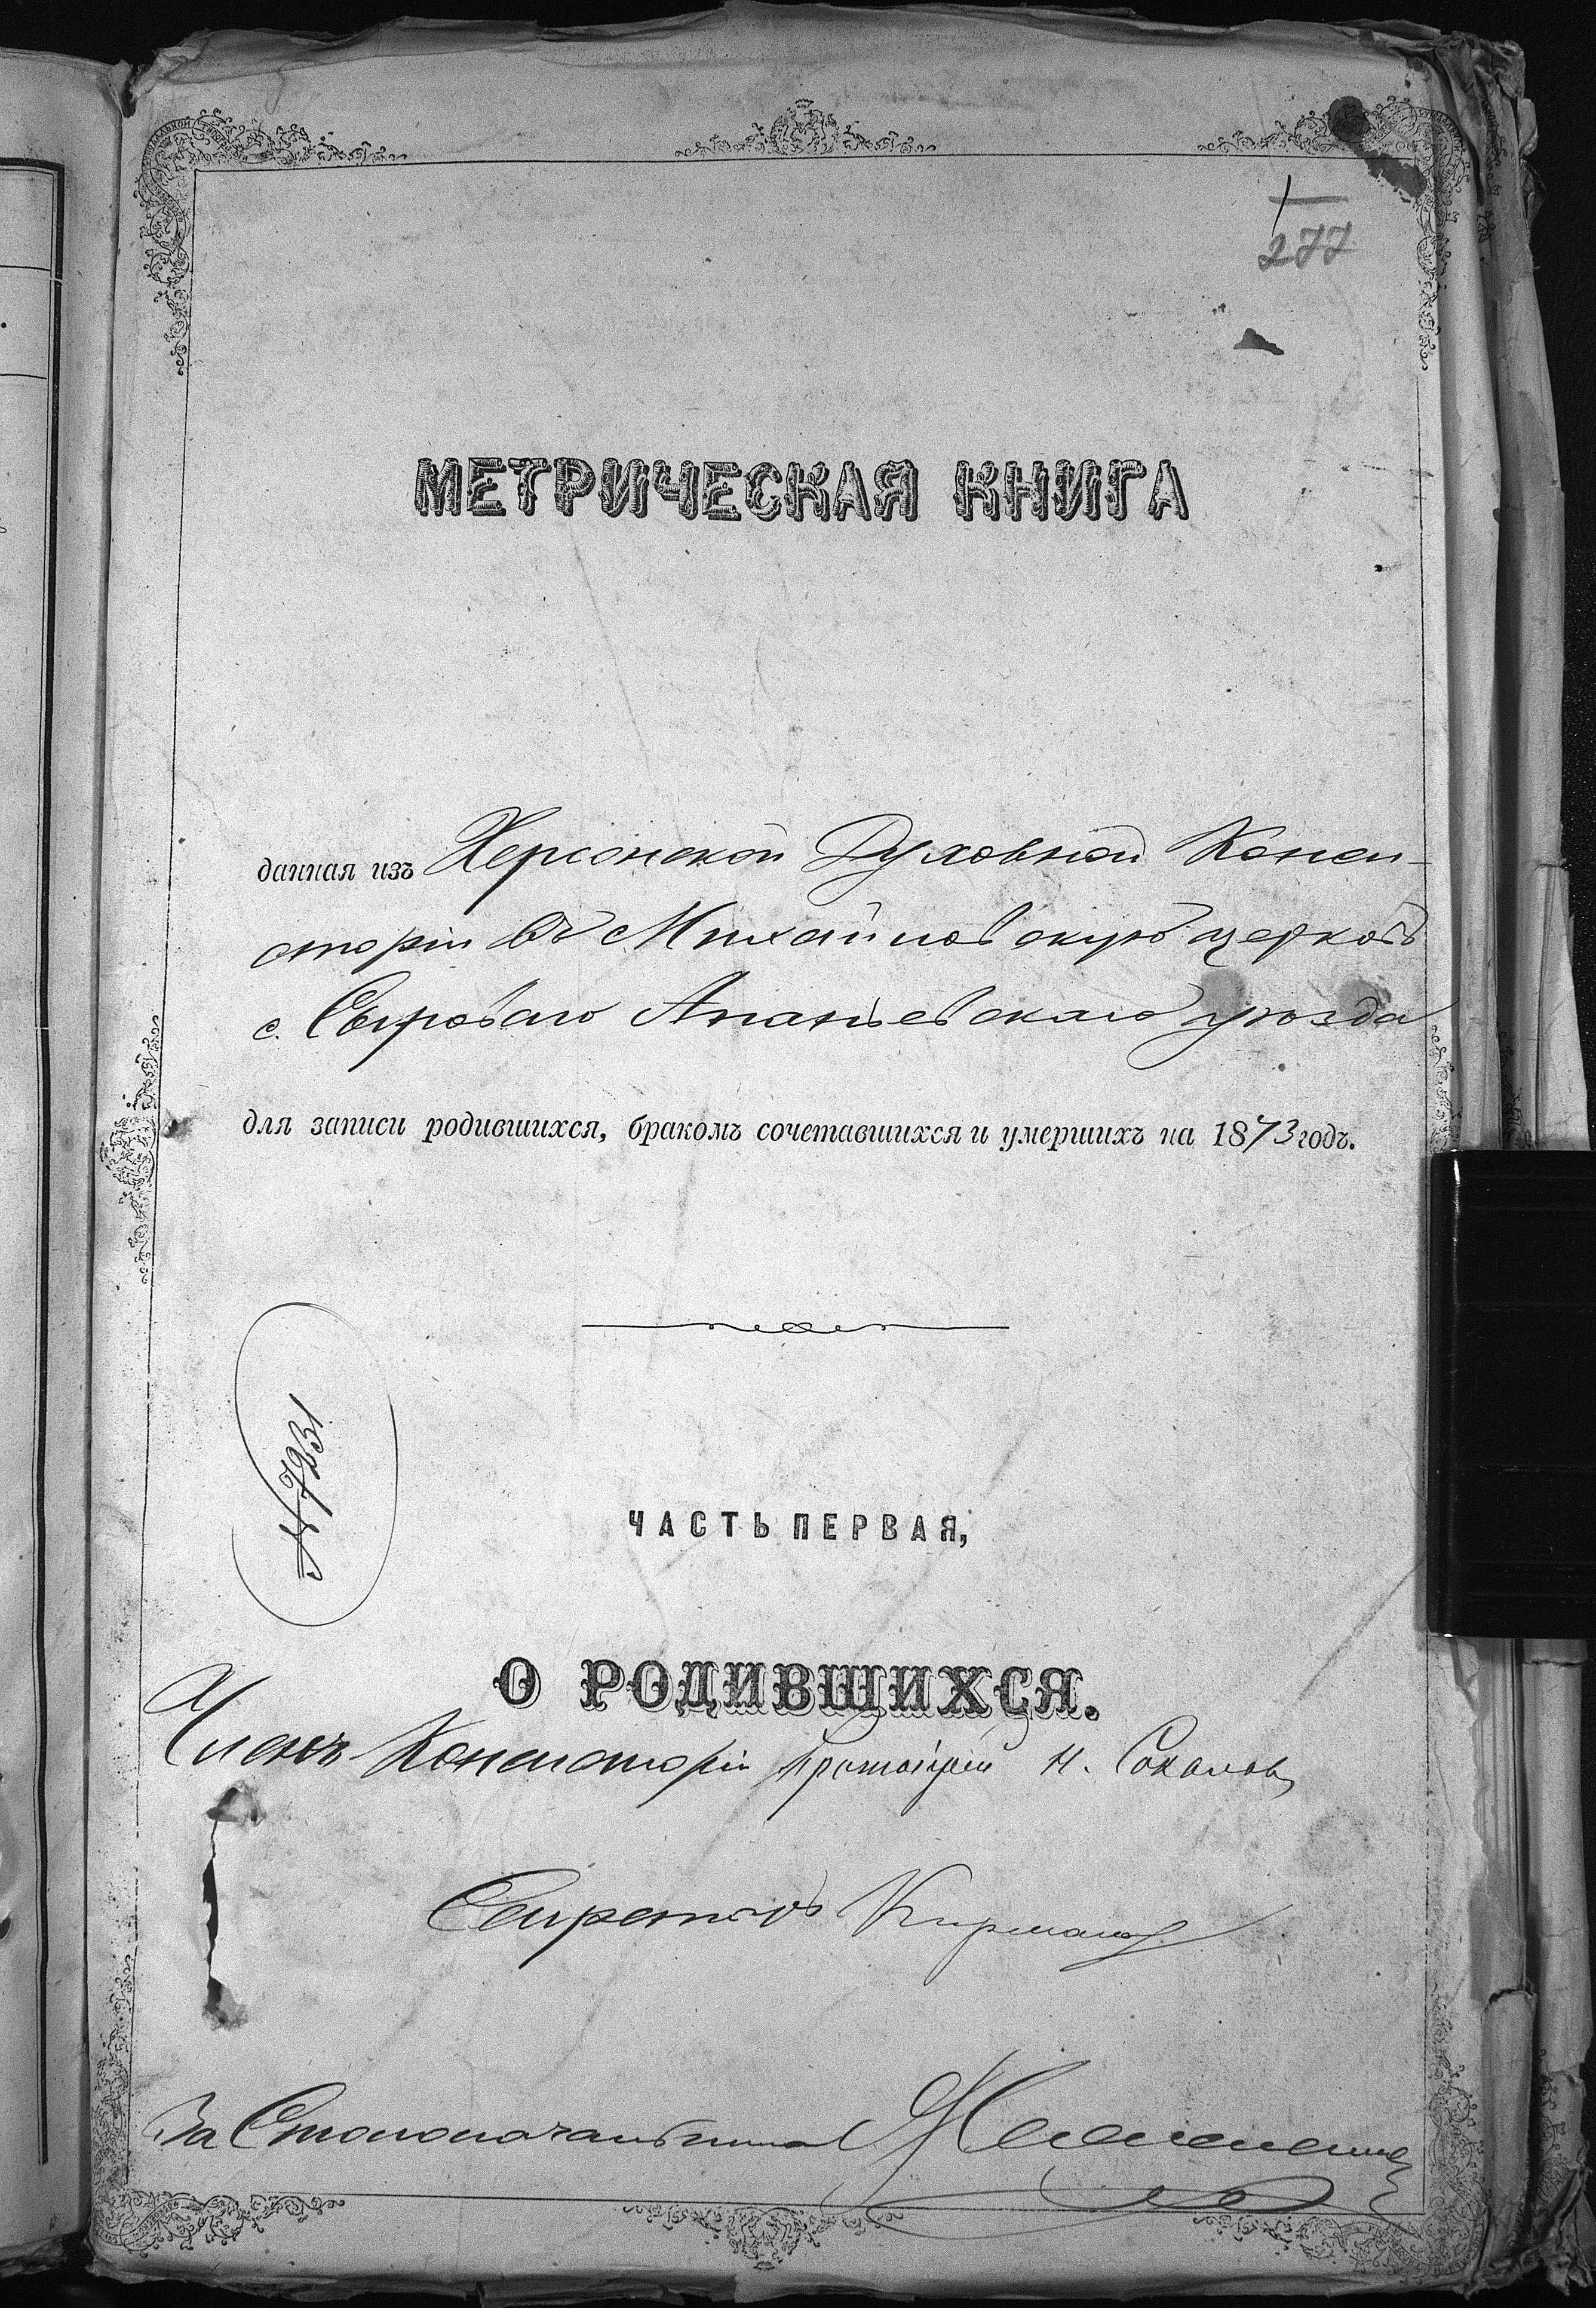 1
277
МЕТРИЧЕСКАЯ КНИГА
данная изъ Херсонской Духовной Конси-
сторіи въ Михайловскую церковь
с. Сыроваго Ананьевскаго уѣзда
для записи родившихся, бракомъ сочетавшихся и умершихъ на 1873 годъ.
№ 7231
ЧАСТЬ ПЕРВАЯ,
О РОДИВШИХСЯ.
Членъ Консисторіи Протоіерей Н. Соколовъ
Секретарь
За Столоначальника